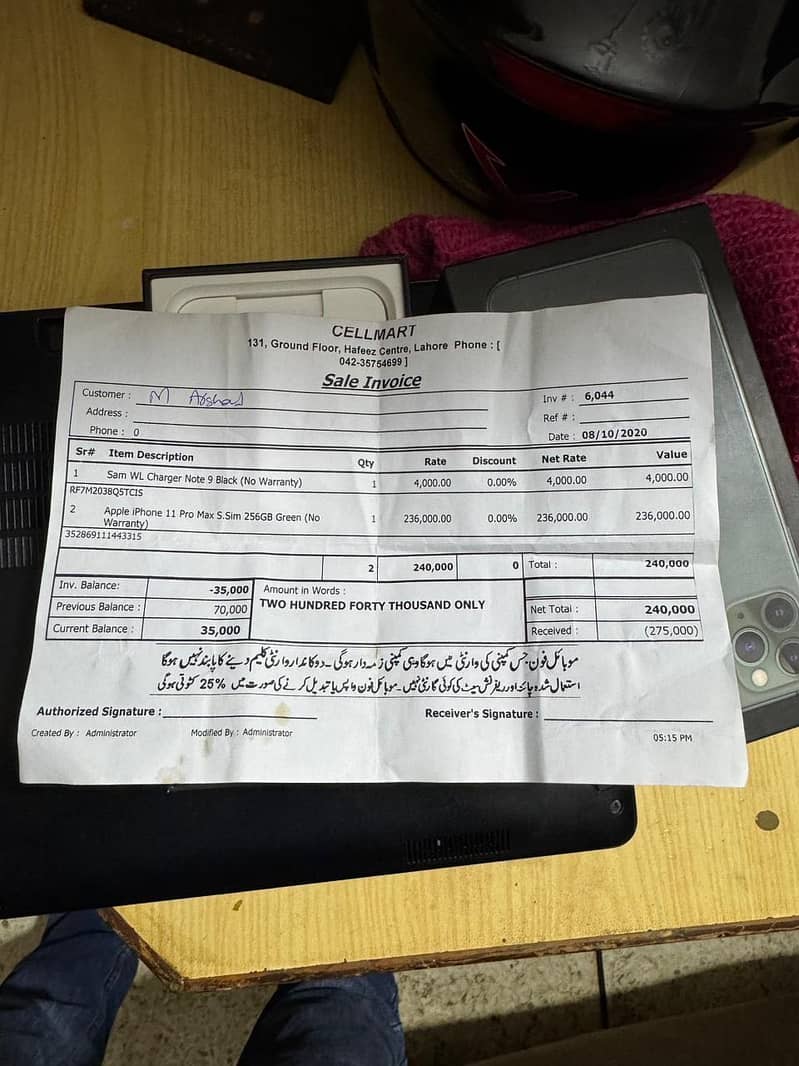 CELLMART
131, Ground Floor, Hafeez Centre, Lahore Phone : [
042-35754699 ]
Sale Invoice
Customer : M Arshad
Inv # : 6,044
Address :
Ref # :
Phone : 0
Date : 08/10/2020
Sr# Item Description Qty Rate Discount Net Rate Value
1 Sam WL Charger Note 9 Black (No Warranty) 1 4,000.00 0.00% 4,000.00 4,000.00
RF7M2038Q5TCIS
2 Apple iPhone 11 Pro Max S.Sim 256GB Green (No 1 236,000.00 0.00% 236,000.00 236,000.00
Warranty)
352869111443315
2 240,000 0 Total : 240,000
Inv. Balance: -35,000
Previous Balance : 70,000
Current Balance : 35,000
Amount in Words :
TWO HUNDRED FORTY THOUSAND ONLY
Net Total : 240,000
Received : (275,000)
موبائل فون جس کمپنی کی وارنٹی میں ہوگا وہی کمپنی ذمہ دار ہوگی ۔ دوکاندار وارنٹی کلیم دینے کا پابند نہیں ہوگا
استعمال شدہ چائنہ اور ریفرلش سیٹ کی کوئی گارنٹی نہیں ۔ موبائل فون واپس یا تبدیل کرنے کی صورت میں 25% کٹوتی ہوگی
Authorized Signature :
Receiver's Signature :
Created By : Administrator
Modified By : Administrator
05:15 PM